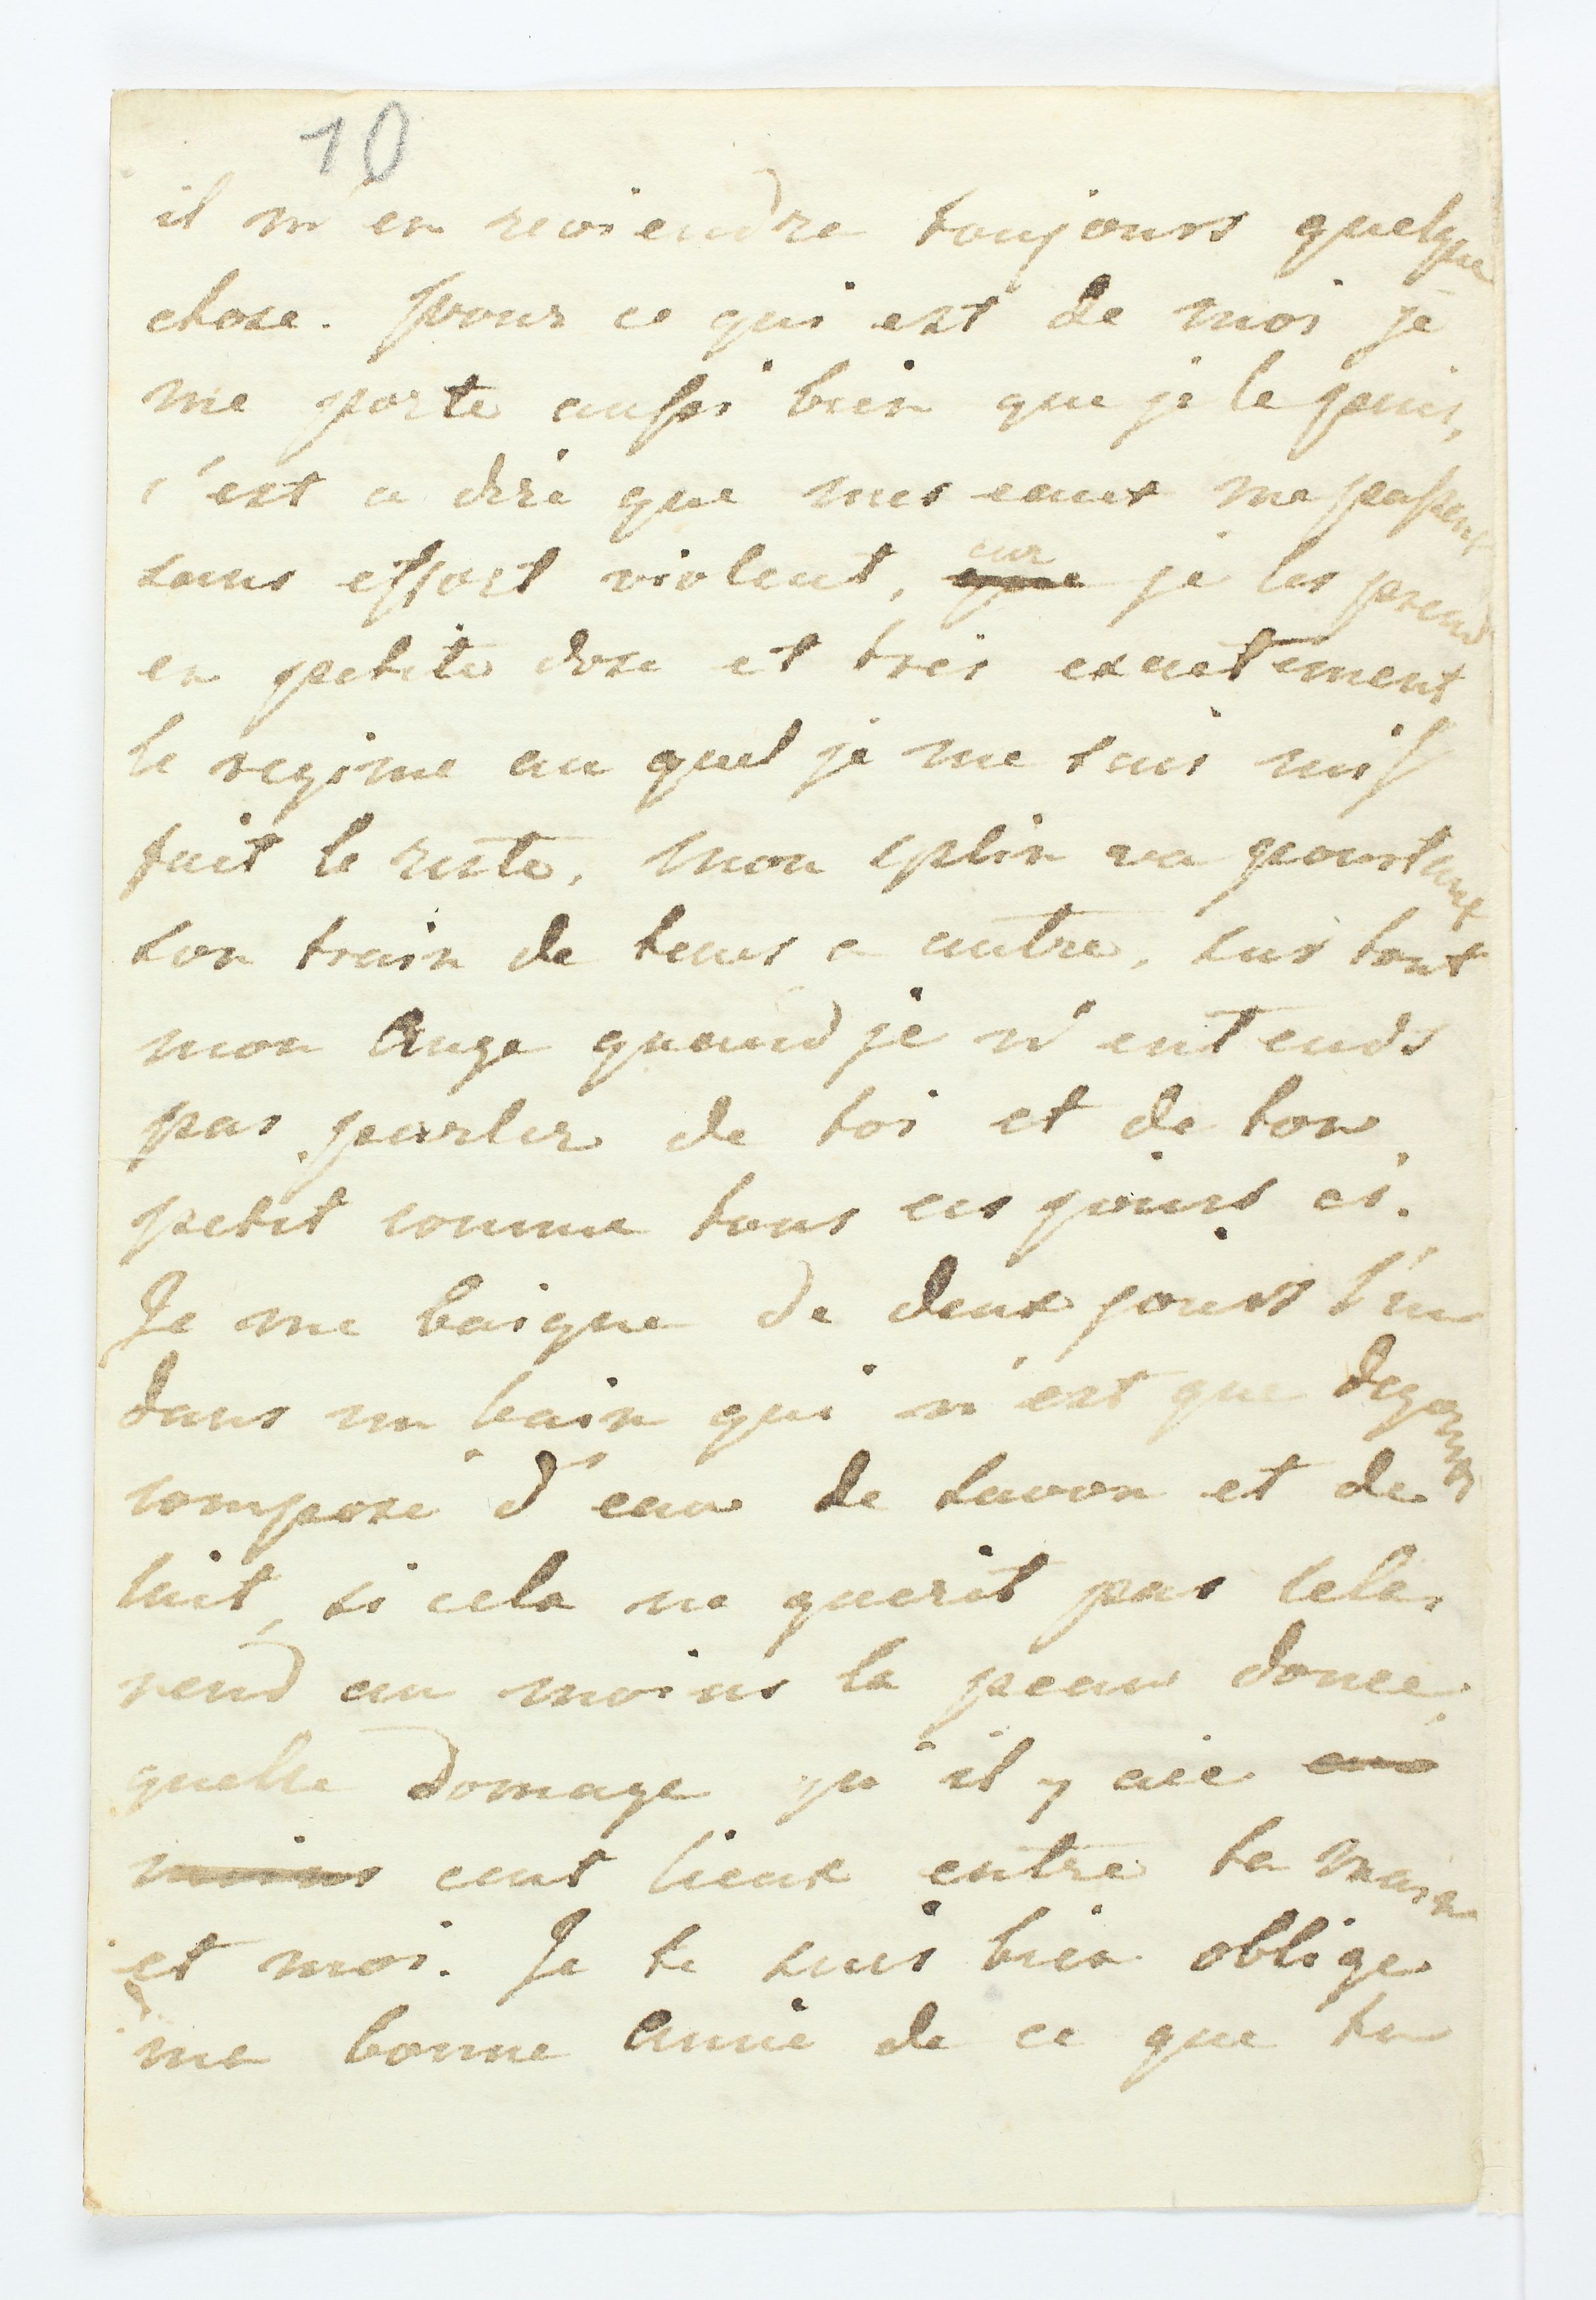 10
il m'en reviendra toujours quelque
chose. pour ce qui est de moi je
me porte aussi bien que je le puis,
c'est a dire que mes eaux me passent
sans effort violent, ~~que~~ car je les prend
en petite dose et tres exactement
le regime au quel je me suis mis
fait le reste, mon splin va pourtant
son train de tems a autre, sur tout
mon Ange quand je n'entends
pas parler de toi et de ton
petit comme tous ces jours ci.
Je me baigne de deux jours l'un
dans un bain qui n'est que
compose d'eau de savon et de
lait, si cela ne guerit pas cela
rend au moins la peau douce,
quelle domage qu'il y aie
~~moins~~ cent lieux entre ta main
et moi. Je te suis bien oblige
ma bonne Amie de ce que tu